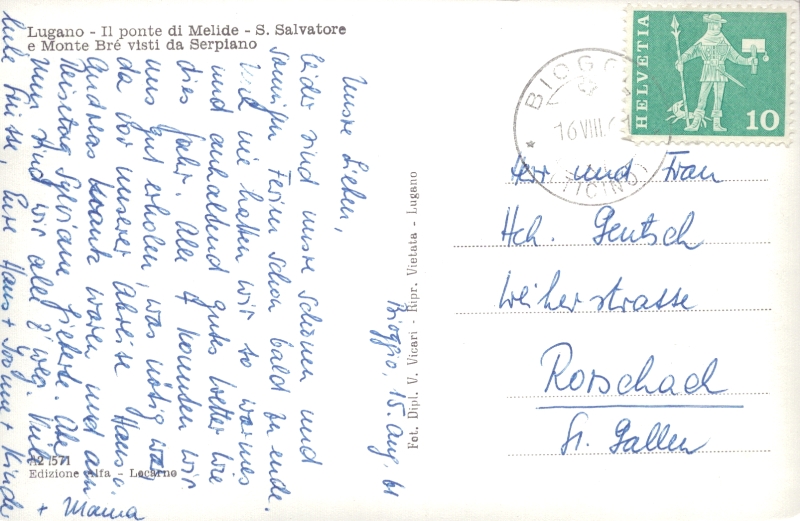 Lugano - Il ponte di Melide - S. Salvatore
e Monte Bré visti da Serpiano
Bioggio, 15. Aug. 61
Unsre Lieben,
leider sind unsre schönen und
sonnigen Ferien schon bald zu ende.
Und nie hatten wir so warmes
und anhaltend gutes Wetter wie
dies Jahr. Alle 4 konnten wir
uns gut erholen, was nötig war
da vor unserer Abreise Hansli
Andreas krank waren und am
Reisetag Sylviane fieberte. Aber
nun sind wir alle z'weg. Viele
liebe Grüsse, Eure Hans + Yvonne + Kinder
+ Mama
HELVETIA
10
BIOGGIO
16.VIII.61
(TICINO)
Herr und Frau
Hch. Gentsch
Weiherstrasse
Rorschach
St. Gallen
Fot. Dipl. V. Vicari - Ripr. Vietata - Lugano
A2 1571
Edizione Alfa - Locarno